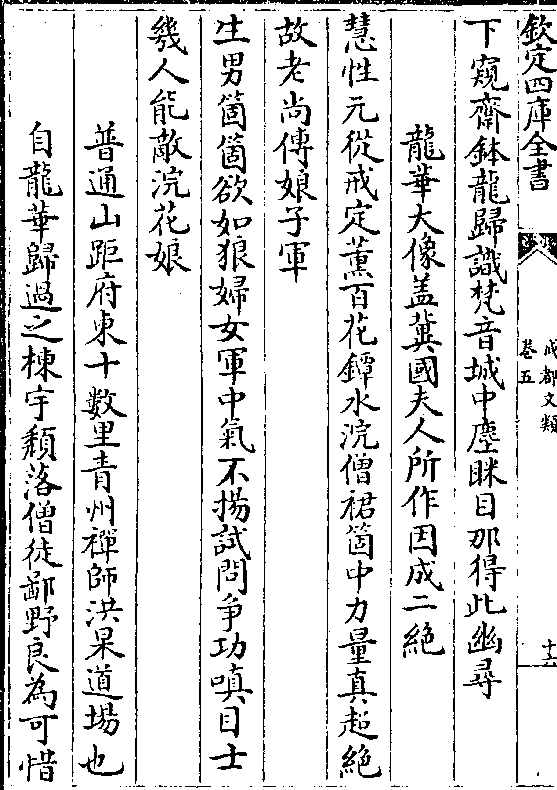 欽定四庫全書
成都文類
卷五
十六
下窺齋鉢龍歸識梵音城中塵眯目那得此幽尋
龍華大像盖冀國夫人所作因成二絶
慧性元從戒定薫百花鐔水浣僧裙箇中力量真超絶
故老尚傳娘子軍
生男箇箇欲如狼婦女軍中氣不揚試問爭功嗔目士
幾人能敵浣花娘
普通山距府東十數里青州禪師洪杲道場也
自龍華歸過之棟宇頽落僧徒鄙野良為可惜